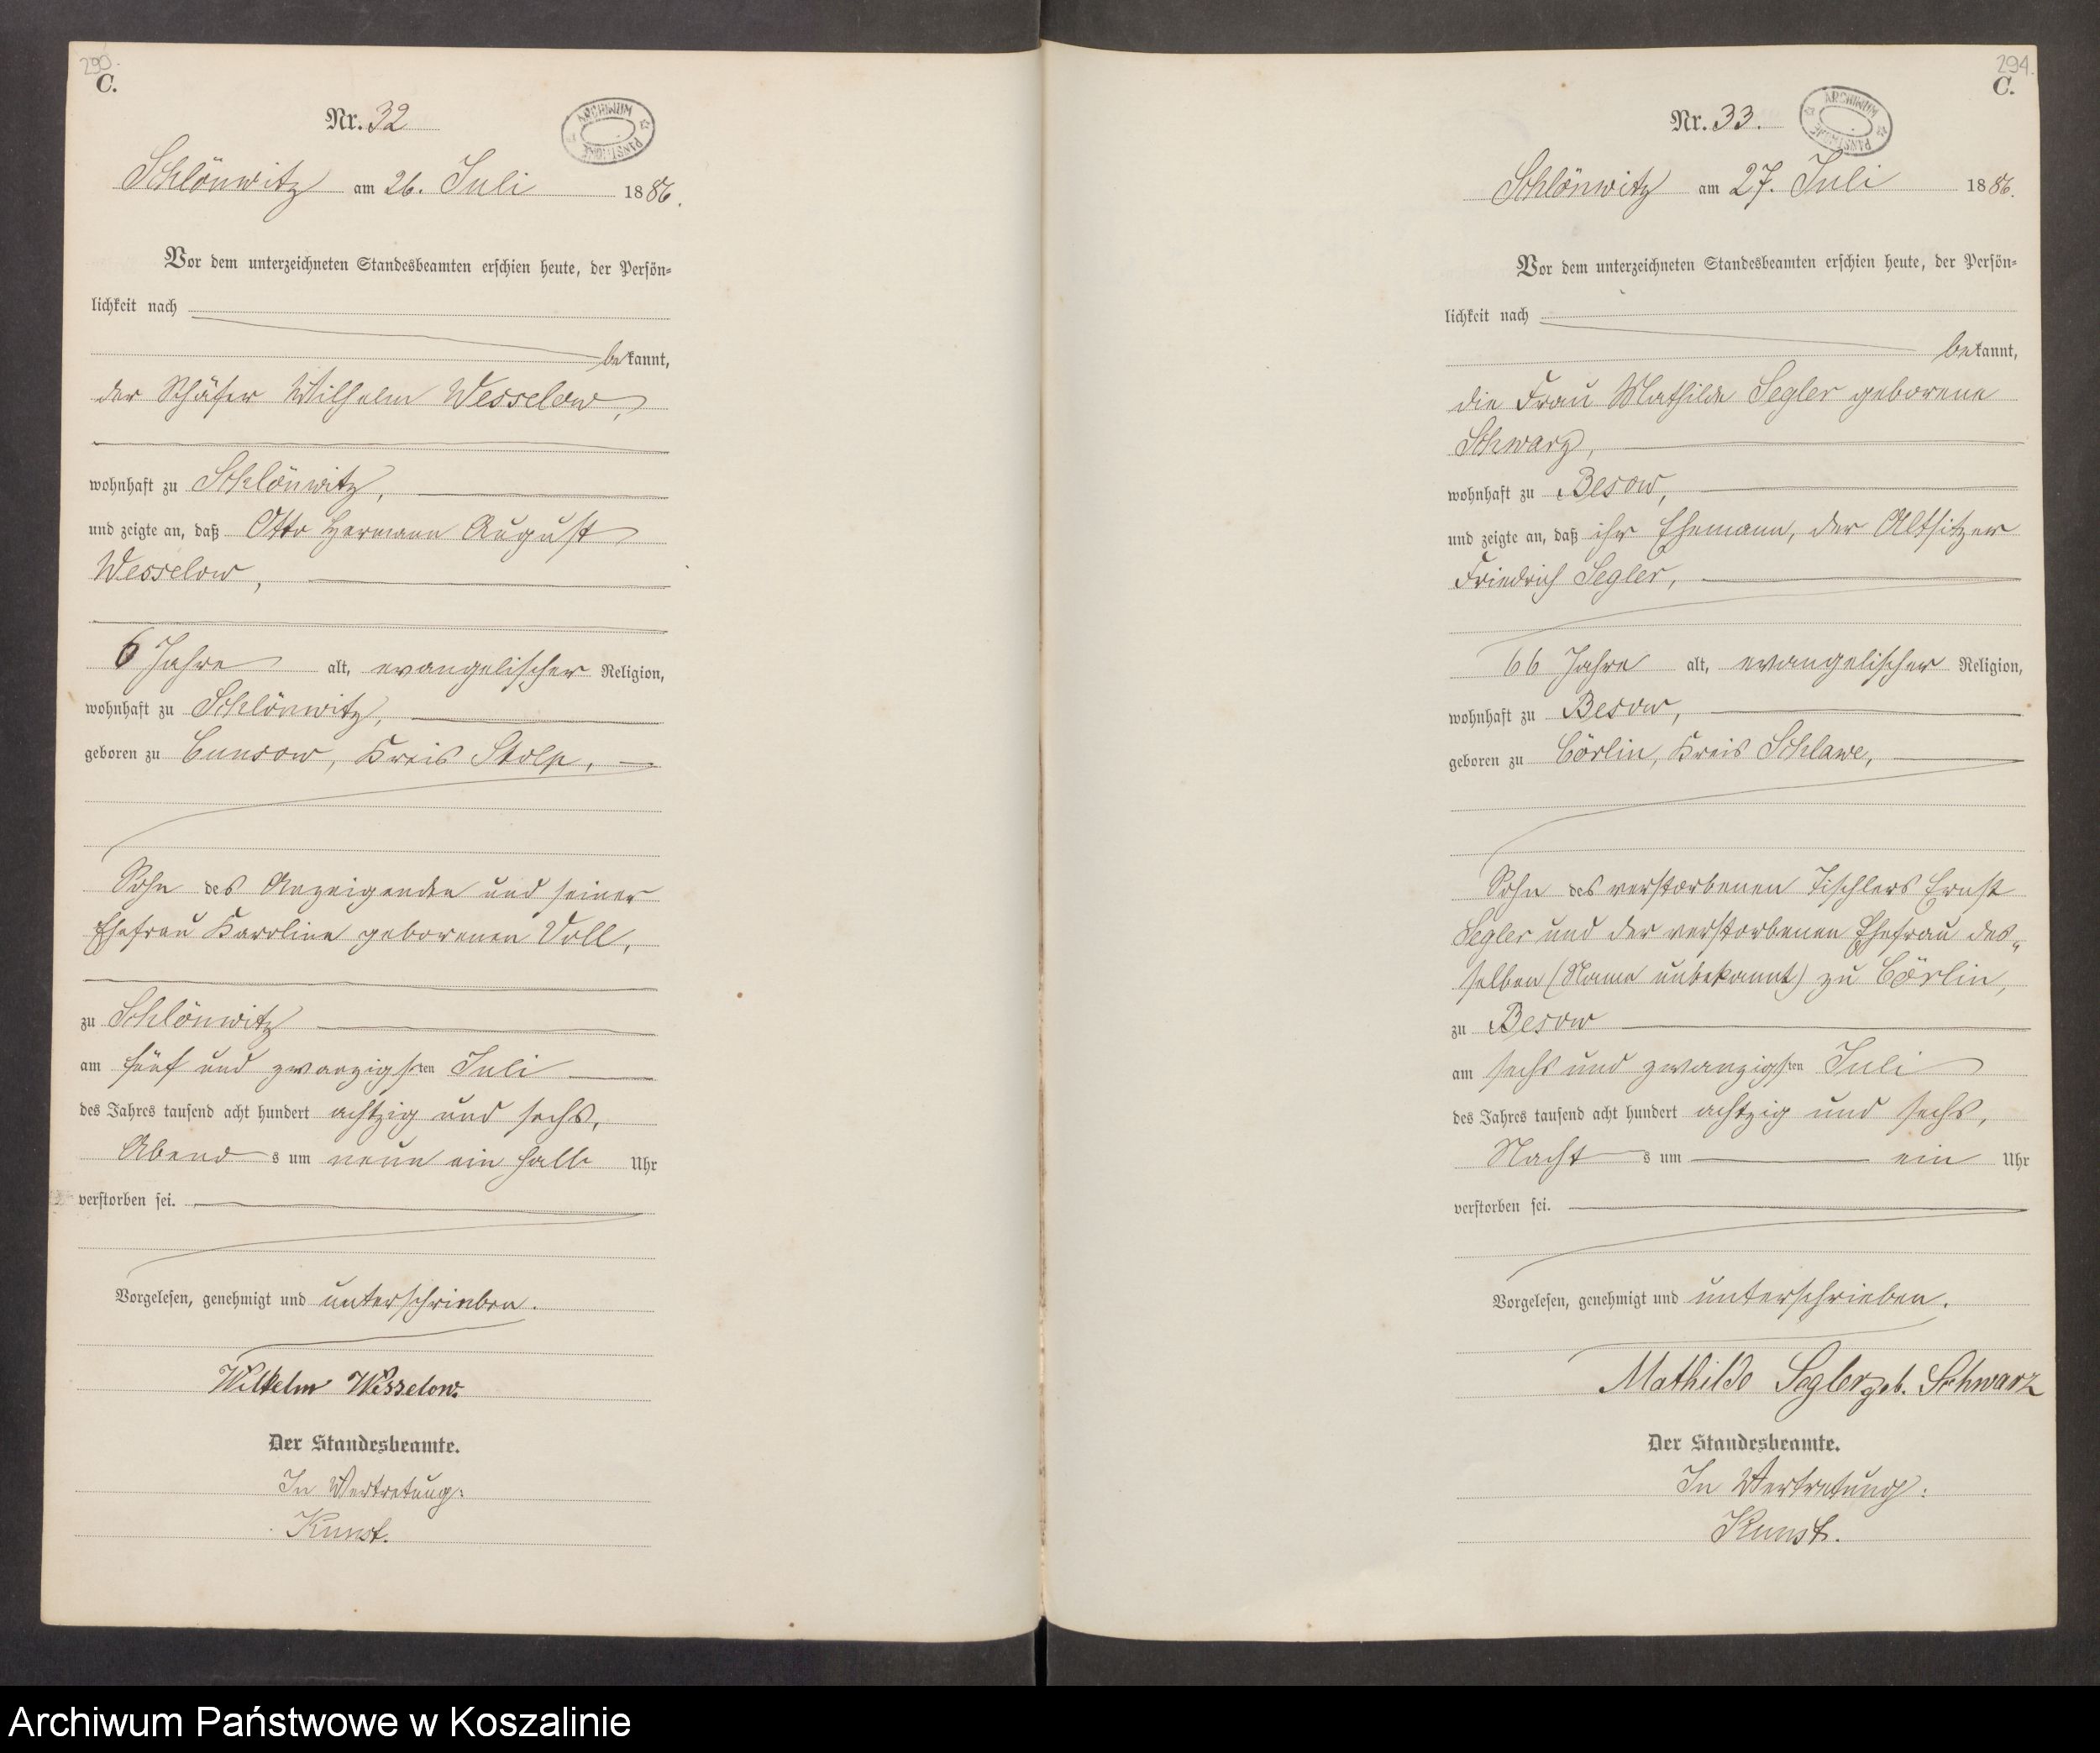 290.
C.
Nr. 32
ARCHIWUM PAŃSTWOWE
Schlönwitz am 26. Juli 1886.
Vor dem unterzeichneten Standesbeamten erschien heute, der Persön=
lichkeit nach
bekannt,
der Schäfer Wilhelm Wesselow,
wohnhaft zu Schlönwitz,
und zeigte an, daß Otto Hermann August
Wesselow,
6 Jahre alt, evangelischer Religion,
wohnhaft zu Schlönwitz,
geboren zu Cunsow, Kreis Stolp,
Sohn des Anzeigenden und seiner
Ehefrau Karoline geborenen Voll,
zu Schlönwitz
am fünf und zwanzigsten Juli
des Jahres tausend acht hundert achtzig und sechs,
Abends um neun ein halb Uhr
verstorben sei.
Vorgelesen, genehmigt und unterschrieben.
Wilhelm Wesselow.
Der Standesbeamte.
In Vertretung:
Kunst.
294.
C.
Nr. 33.
ARCHIWUM PAŃSTWOWE
Schlönwitz am 27. Juli 1886.
Vor dem unterzeichneten Standesbeamten erschien heute, der Persön=
lichkeit nach
bekannt,
die Frau Mathilde Segler geborene
Schwarz,
wohnhaft zu Besow,
und zeigte an, daß ihr Ehemann, der Altsitzer
Friedrich Segler,
66 Jahre alt, evangelischer Religion,
wohnhaft zu Besow,
geboren zu Cörlin, Kreis Schlawe,
Sohn des verstorbenen Tischlers Ernst
Segler und der verstorbenen Ehefrau des„
selben (Name unbekannt) zu Cörlin,
zu Besow
am sechs und zwanzigsten Juli
des Jahres tausend acht hundert achtzig und sechs,
Nachts um ein Uhr
verstorben sei.
Vorgelesen, genehmigt und unterschrieben.
Mathilde Segler geb. Schwarz
Der Standesbeamte.
In Vertretung:
Kunst.
Archiwum Państwowe w Koszalinie